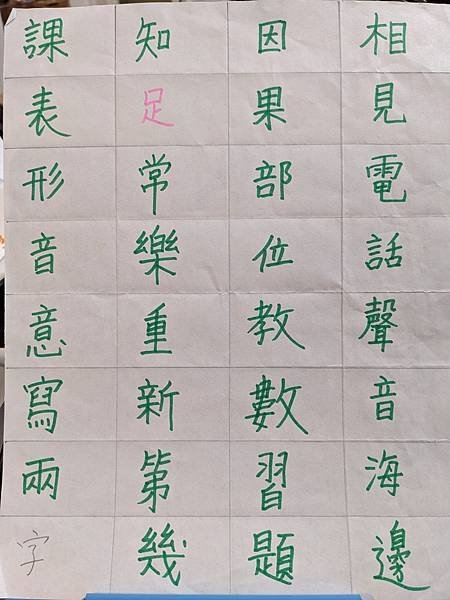 相見電話聲音海邊
因果部位教數習題
知足常樂重新第幾
課表形音意寫兩字